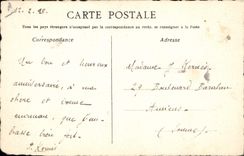 12.2.10
CARTE POSTALE
Tous les pays étrangers n'acceptent pas la correspondance au recto, se renseigner à la Poste
Correspondance
Adresse
Un bon et heureux
anniversaire, à ma
chère et bonne
maman, que l'em-
brasse bien fort
Madame J.
29 Boulevard
Amiens
(Somme)